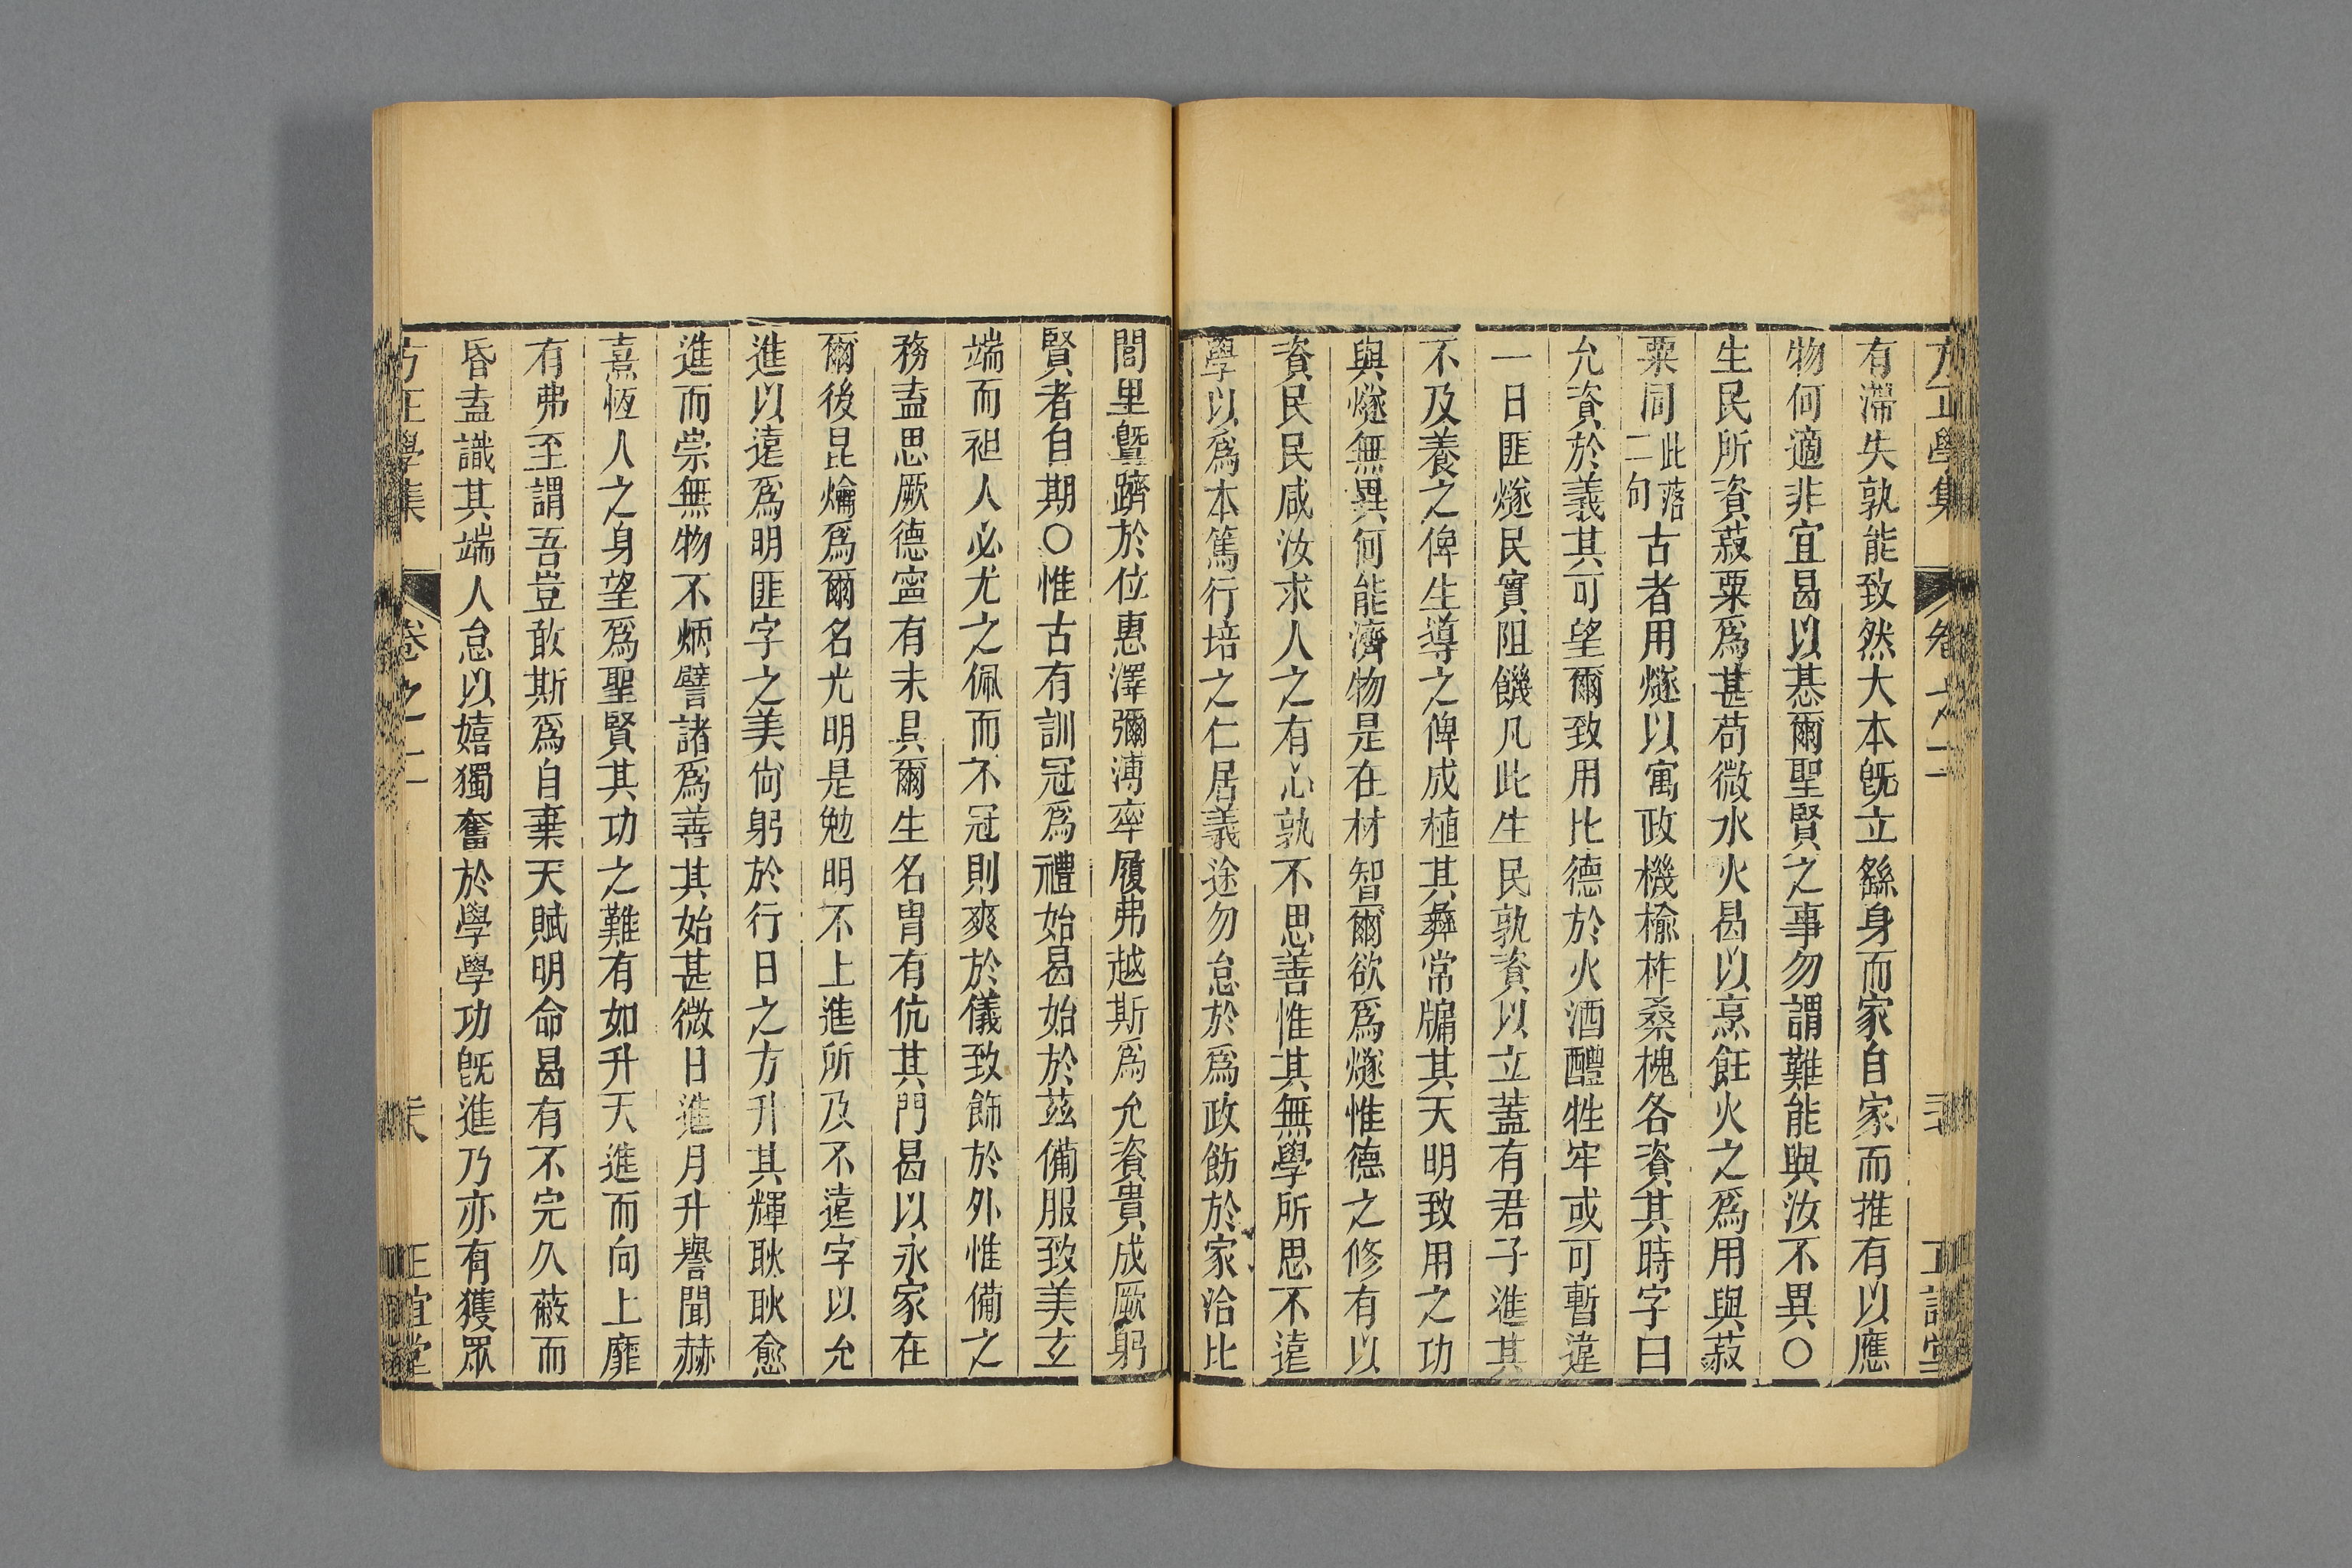 有滯失孰能致然大本既立繇身而家自家而推有以應
物何適非宜曷以惎爾聖賢之事勿謂難能與汝不異○
生民所資菽粟爲甚苟微水火曷以烹飪火之爲用與菽
粟同此落二句古者用燧以寓政機榆柞桑槐各資其時字曰
允資於義其可望爾致用比德於火酒醴牲牢或可暫違
一日匪燧民實阻饑凡此生民孰資以立蓋有君子進其
不及養之俾生導之俾成植其彝常牖其天明致用之功
與燧無異何能濟物是在材智爾欲爲燧惟德之修有以
資民民咸汝求人之有心孰不思善惟其無學所思不遠
學以爲本篤行培之仁居義途勿怠於爲政飭於家洽比
閭里暨躋於位惠澤彌溥率履弗越斯爲允資貴成厥躬
賢者自期○惟古有訓冠爲禮始曷始於茲備服致美玄
端而袒人必尤之佩而不冠則爽於儀致飾於外惟備之
務盍思厥德寧有未具爾生名胄有伉其門曷以永家在
爾後昆爚爲爾名光明是勉明不上進所及不遠字以允
進以遠爲明匪字之美尙躬於行日之方升其輝耿耿愈
進而崇無物不炳譬諸爲善其始甚微日進月升譽聞赫
熹恆人之身望爲聖賢其功之難有如升天進而向上靡
有弗至謂吾豈敢斯爲自棄天賦明命曷有不完久蔽而
昏盍識其端人怠以嬉獨奮於學學功既進乃亦有獲眾
方正學集
卷之二
正誼堂